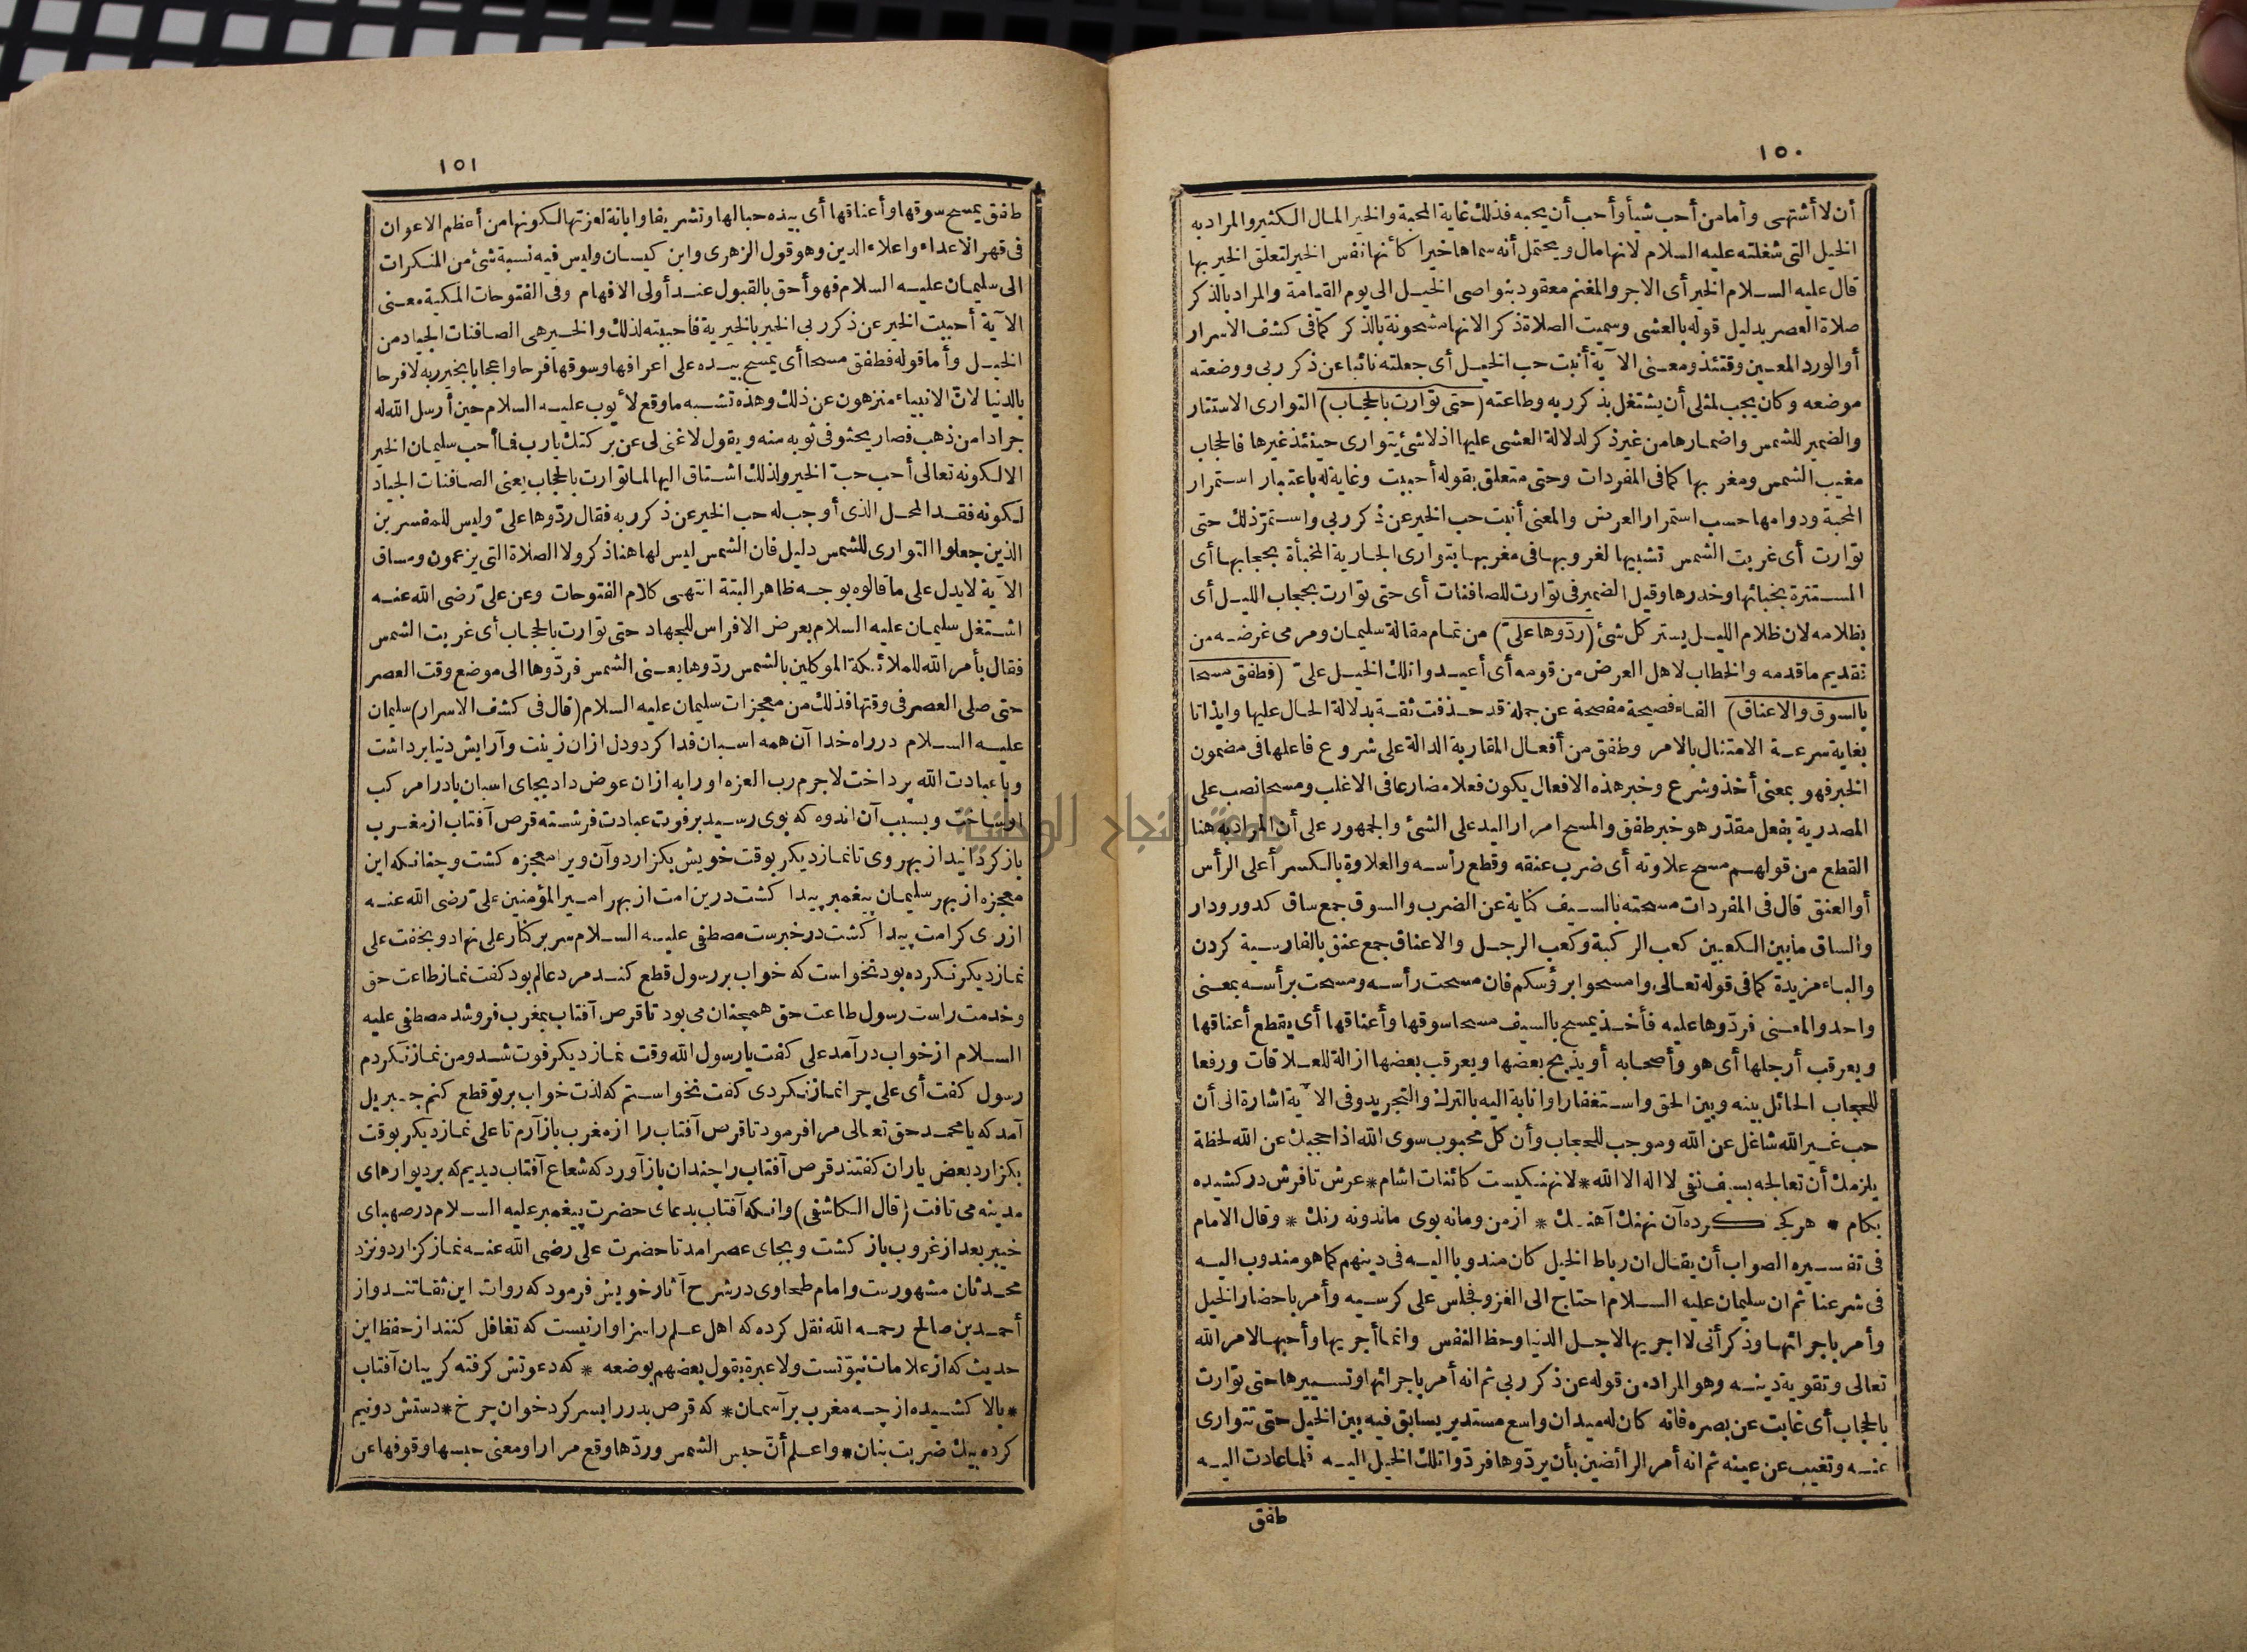 ١٥٠
أن لا أشتهى وأما من أحب شيأ وأحب أن يحبه فذلك غاية المحبة والخير المال الكثير والمراد به
الخيل التى شغلته عليه السلام لانها مال ويحتمل أنه سماها خيرا كأنها نفس الخير لتعلق الخير بها
قال عليه السلام الخير أى الاجر والمغنم معقود بنواصى الخيل الى يوم القيامة والمراد بالذكر
صلاة العصر بدليل قوله بالعشى وسميت الصلاة ذكرا لانها مشحونة بالذكر كما فى كشف الاسرار
أو الورد المعين وقتئذ ومعنى الآية أنبت حب الخيل أى جعلته نائبا عن ذكر ربى ووضعته
موضعه وكان يجب لمثلى أن يشتغل بذكر ربه وطاعته (حتى توارت بالحجاب) التوارى الاستتار
والضمير للشمس واضمارها من غير ذكر لدلالة العشى عليها اذ لا شئ يتوارى حينئذ غيرها فالحجاب
مغيب الشمس ومغربها كما فى المفردات وحتى متعلق بقوله أحببت وغاية له باعتبار استمرار
المحبة ودوامها حسب استمرار العرض والمعنى أنبت حب الخير عن ذكر ربى واستمرّ ذلك حتى
توارت أى غربت الشمس تشبيها لغروبها فى مغربها بتوارى الجارية المخبأة بحجابها أى
المستترة بخبائها وخدرها وقيل الضمير فى توارت للصافنات أى حتى توارت بحجاب الليل أى
بظلامه لان ظلام الليل يستر كل شئ (ردّوها علىّ) من تمام مقالة سليمان ومرمى غرضه من
تقديم ما قدمه والخطاب لاهل العرض من قومه أى أعيدوا تلك الخيل علىّ (فطفق مسحا
بالسوق والاعناق) الفاء فصيحة مفصحة عن جملة قد حذفت ثقة بدلالة الحال عليها وايذانا
بغاية سرعة الامتثال بالامر وطفق من أفعال المقاربة الدالة على شروع فاعلها فى مضمون
الخبر فهو بمعنى أخذ وشرع وخبر هذه الافعال يكون فعلا مضارعا فى الاغلب ومسحا نصب على
المصدرية بفعل مقدّر هو خبر طفق والمسح امرار اليد على الشئ والجمهور على أن المراد به هنا
القطع من قولهم مسح علاوته أى ضرب عنقه وقطع رأسه والعلاوة بالكسر أعلى الرأس
أو العنق قال فى المفردات مسحته بالسيف كناية عن الضرب والسوق جمع ساق كدور ودار
والساق ما بين الكعبين كعب الركبة وكعب الرجل والاعناق جمع عنق بالفارسية كردن
والباء مزيدة كما فى قوله تعالى وامسحوا برؤسكم فان مسحت رأسه ومسحت برأسه بمعنى
واحد والمعنى فردّوها عليه فأخذ يمسح بالسيف مسحا سوقها وأعناقها أى يقطع أعناقها
ويعرقب أرجلها أى هو وأصحابه أو يذبح بعضها ويعرقب بعضها ازالة للعلاقات ورفعا
للحجاب الحائل بينه وبين الحق واستغفارا وانابة اليه بالترك والتجريد وفى الآية اشارة الى أن
حب غير الله شاغل عن الله وموجب للحجاب وأن كل محبوب سوى الله اذا حجبك عن الله لحظة
يلزمك أن تعالجه بسيف نفى لا اله الا الله * لا نهنكيست كائنات اشام * عرش تا فرش در كشيده
بكام * هر كجا كرده آن نهنك آهنك * از من وما نه بوى ماند ونه رنك * وقال الامام
فى تفسيره الصواب أن يقال ان رباط الخيل كان مندوبا اليه فى دينهم كما هو مندوب اليه
فى شرعنا ثم ان سليمان عليه السلام احتاج الى الغزو فجلس على كرسيه وأمر باحضار الخيل
وأمر باجرائها وذكر أنى لا اجريها لاجل الدنيا وحظ النفس وانما أجريها وأحبها لامر الله
تعالى وتقوية دينه وهو المراد من قوله عن ذكر ربى ثم انه أمر باجرائها وتسييرها حتى توارت
بالحجاب أى غابت عن بصره فانه كان له ميدان واسع مستدير يسابق فيه بين الخيل حتى تتوارى
عنه وتغيب عن عينه ثم انه أمر الرائضين بأن يردّوها فردّوا تلك الخيل اليه فلما عادت اليه
طفق
١٥١
طفق يمسح سوقها وأعناقها أى بيده حبا لها وتشريفا وابانة لعزتها لكونها من أعظم الاعوان
فى قهر الاعداء واعلاء الدين وهو قول الزهرى وابن كيسان وليس فيه نسبة شئ من المنكرات
الى سليمان عليه السلام فهو أحق بالقبول عند أولى الافهام وفى الفتوحات المكية معنى
الآية أحببت الخير عن ذكر ربى الخير بالخيرية فأحببته لذلك والخير هى الصافنات الجياد من
الخيل وأما قوله فطفق مسحا أى يمسح بيده على اعرافها وسوقها فرحا واعجابا بخير ربه لا فرحا
بالدنيا لانّ الانبياء منزهون عن ذلك وهذه تشبه ما وقع لأيوب عليه السلام حين أرسل الله له
جرادا من ذهب فصار يحثو فى ثوبه منه ويقول لا غنى لى عن بركتك يا رب فما أحب سليمان الخير
الا لكونه تعالى أحب حبّ الخير ولذلك اشتاق اليها لما توارت بالحجاب يعنى الصافنات الجياد
لكونه فقد المحل الذى أوجب له حب الخير عن ذكر ربه فقال ردّوها علىّ وليس للمفسرين
الذين جعلوا التوارى للشمس دليل فان الشمس ليس لها هنا ذكر ولا الصلاة التى يزعمون ومساق
الآية لا يدل على ما قالوه بوجه ظاهر البتة انتهى كلام الفتوحات وعن علىّ رضى الله عنه
اشتغل سليمان عليه السلام بعرض الافراس للجهاد حتى توارت بالحجاب أى غربت الشمس
فقال بأمر الله للملائكة الموكلين بالشمس ردّوها يعنى الشمس فردّوها الى موضع وقت العصر
حتى صلى العصر فى وقتها فذلك من معجزات سليمان عليه السلام (قال فى كشف الاسرار) سليمان
عليه السلام در راه خدا آن همه اسبان فدا كرد ودل ازان زينت وآرايش دنيا برداشت
وبا عبادت الله پرداخت لاجرم رب العزه او را به ازان عوض داد بجاى اسبان باد را مركب
او ساخت وبسبب آن اندوه كه بوى رسيد بر فوت عبادت فرشته قرص آفتاب از مغرب
باز كردانيد از بهر وى تا نماز ديكر بوقت خويش بكزارد وآن ويرا معجزه كشت وچنانكه اين
معجزه از بهر سليمان پيغمبر پيدا كشت درين امت از بهر امير المؤمنين علىّ رضى الله عنه
از روى كرامت پيدا كشت در خبرست مصطفى عليه السلام سر بر كنار على نهاد وبخفت على
نماز ديكر نكرده بود نخواست كه خواب بر رسول قطع كند مرد عالم بود كفت نماز طاعت حق
وخدمت راست رسول طاعت حق همچنان مى بود تا قرص آفتاب بمغرب فروشد مصطفى عليه
السلام از خواب درآمد على كفت يا رسول الله وقت نماز ديكر فوت شد ومن نماز نكردم
رسول كفت أى على چرا نماز نكردى كفت نخواستم كه لذت خواب بر تو قطع كنم جبريل
آمد كه يا محمد حق تعالى مرا فرمود تا قرص آفتاب را از مغرب باز آرم تا على نماز ديكر بوقت
بكزارد بعض ياران كفتند قرص آفتاب را چندان باز آورد كه شعاع آفتاب ديديم كه بر ديوارهاى
مدينه مى تافت (قال الكاشفى) وانكه آفتاب بدعاى حضرت پيغمبر عليه السلام در صهباى
خيبر بعد از غروب باز كشت وبجاى عصر امد تا حضرت على رضى الله عنه نماز كزارد ونزد
محدثان مشهورست وامام طحاوى در شرح آثار خويش فرمود كه روات اين ثقاتند واز
أحمد بن صالح رحمه الله نقل كرده كه اهل علم را سزاوار نيست كه تغافل كنند از حفظ اين
حديث كه از علامات نبوّتست ولا عبرة بقول بعضهم بوضعه * كه دعوتش كرفته كريبان آفتاب
* بالا كشيده از چه مغرب بر آسمان * كه قرص بدر را بسر كرد خوان چرخ * دستش دو نيم
كرده بيك ضربت بنان * واعلم أنّ حبس الشمس وردّها وقع مرارا ومعنى حبسها وقوفها عن